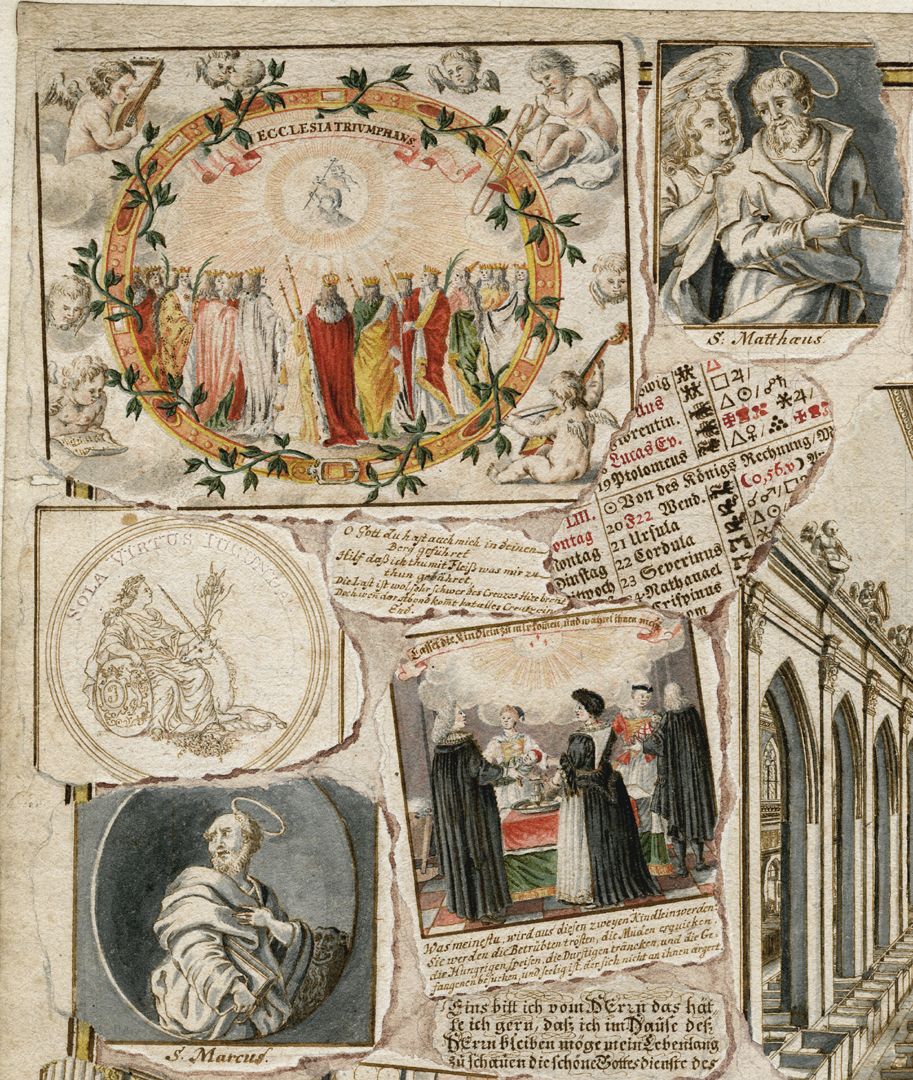 ECCLESIA TRIUMPHANS
S. Matthæus.
wig
us
Florentin
Lucas Ev.
19 Ptolomeus
LIII. Von des Königs Rechnung / M
ontag 20 F22 Wend.
Montag 21 Ursula
Dinstag 22 Cordula
itwoch 23 Severinus
Nathanael
Crispinus
SOLA VIRTUS
O Gott du hast auch mich in deinen
Berg geführet
Hilf daß ich thu mit Fleiß was mir zu
thun gebühret,
Die Last ist wol sehr schwer des Creuzes Hitz
Doch wen der Abend komt hat alles Creutz ein
End.
Lasset die Kindlein zu mir kom̅en, und wehret ihnen nicht
Was meinestu, wird aus diesen zweyen Kindlein werden
Sie werden die Betrübten trösten, die Müden erquicken
die Hungrigen speisen, die Durstigen träncken, und die Ge-
fangenen besuchen, und seelig ist der sich nicht an ihnen ärgert.
S. Marcus.
Eins bitt ich vom HErrn das hät-
te ich gern, daß ich im Hause deß
HErrn bleiben möge mein Lebenlang
zu schauen die schöne Gottesdienste des